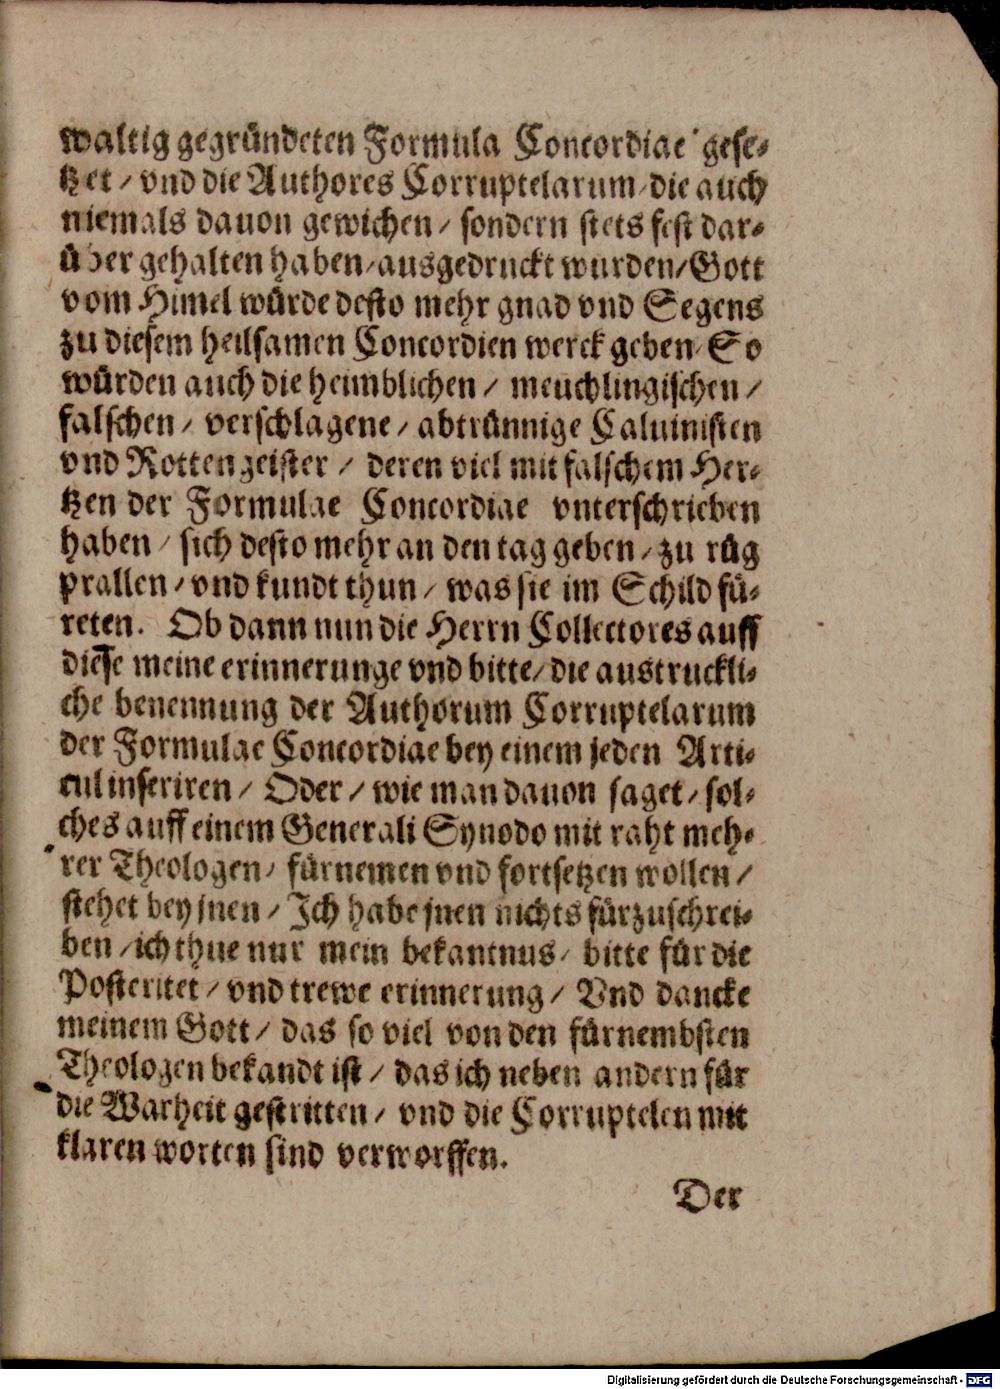 waltig gegründeten Formula Concordiae gese-
tzet / vnd die Authores Corruptelarum / die auch
niemals dauon gewichen / sondern stets fest dar-
über gehalten haben / ausgedruckt wurden / Gott
vom Himel würde desto mehr gnad vnd Segens
zu diesem heilsamen Concordien werck geben / So
würden auch die heimblichen / meuchlingischen /
falschen / verschlagene / abtrünnige Caluinisten
vnd Rottengeister / deren viel mit falschem Her-
tzen der Formulae Concordiae vnterschrieben
haben / sich desto mehr an den tag geben / zu rüg
prallen / vnd kundt thun / was sie im Schild fü-
reten. Ob dann nun die Herrn Collectores auff
diese meine erinnerunge vnd bitte / die austruckli-
che benennung der Authorum Corruptelarum
der Formulae Concordiae bey einem jeden Arti-
cul inseriren / Oder / wie man dauon saget / sol-
ches auff einem Generali Synodo mit raht meh-
rer Theologen / fürnemen vnd fortsetzen wollen /
stehet bey jnen / Ich habe jnen nichts fürzuschrei-
ben / ich thue nur mein bekantnus / bitte für die
Posteritet / vnd trewe erinnerung / Vnd dancke
meinem Gott / das so viel von den fürnembsten
Theologen bekandt ist / das ich neben andern für
die Warheit gestritten / vnd die Corruptelen mit
klaren worten sind verworffen.
Der
Digitalisierung gefördert durch die Deutsche Forschungsgemeinschaft - DFG